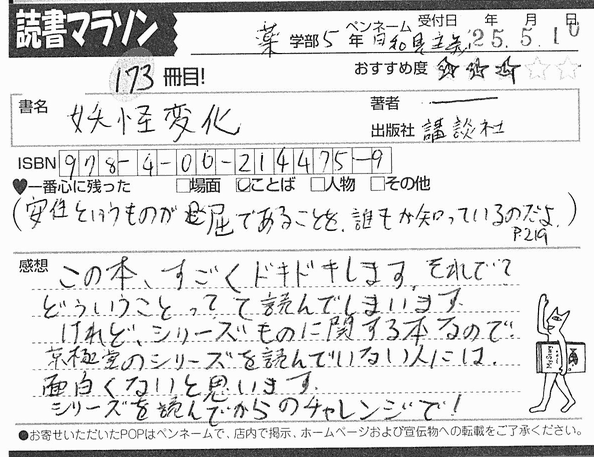 読書マラソン
173冊目!
薬学部5年 ペンネーム 日和見主義 受付日 25年5月10日
おすすめ度 ★★★☆☆
書名 妖怪変化
著者 ―
出版社 講談社
ISBN 978-4-06-214475-9
♥一番心に残った □場面 ☑ことば □人物 □その他
(安住というものが退屈であることを、誰もが知っているのだよ。)
P.219
感想 この本、すごくドキドキします。それでて
どういうことってて読んでしまいます。
けれど、シリーズものに関する本なので、
京極堂のシリーズを読んでいない人には、
面白くないと思います。
シリーズを読んでからのチャレンジで!
●お寄せいただいたPOPはペンネームで、店内で掲示、ホームページおよび宣伝物への転載をご了承ください。